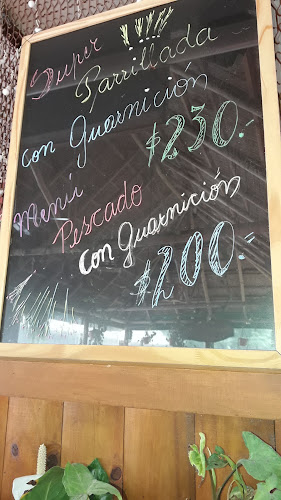 Super !!!!
Parrillada
con Guarnición
$230.-
Menú
Pescado
con Guarnición
$200.-